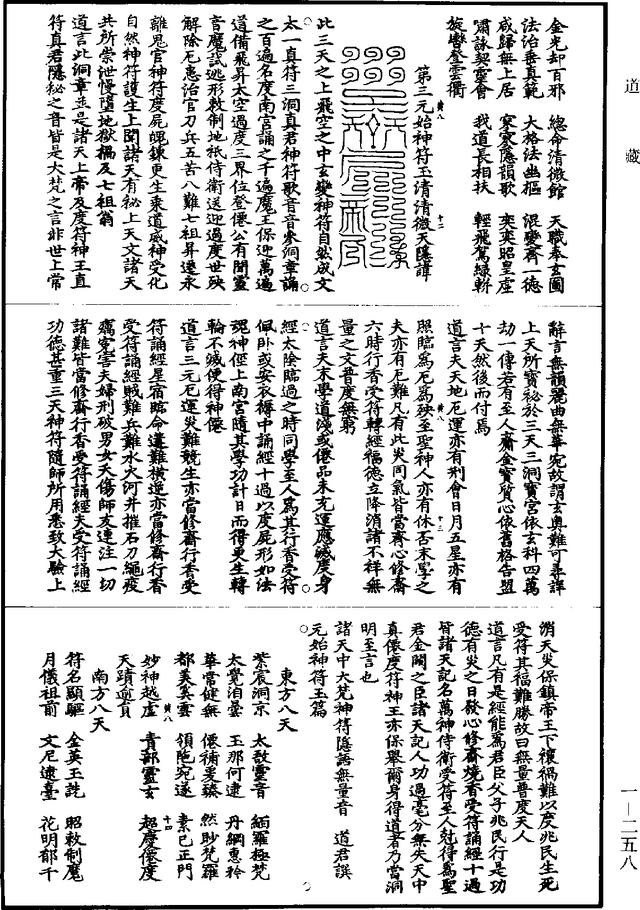 道藏
金光却百邪　總命清微館　天職奉玄圖
法治垂真範　大格法幽樞　混變齊一德
咸歸無上居　寥寥隱韻歌　奕奕昭皇虛
肅詠契靈會　我道長相扶　輕飛駕綠軿
旋轡登雲衢
第三元始神符玉清清微天隱諱
此三天之上飛空之中玄變神符自然成文
太一真符三洞真君神符歌音音參洞章誦
之百遍名度南宮誦之千遍魔王保迎萬遍
道備飛昇太空過度三界位登僊公有聞靈
音魔試逃形敕制地祇侍衛送迎過度世殃
解除厄患治官刀兵五苦八難七祖昇遷永
離鬼官神符度屍魄鍊更生乘道威神受化
自然神符護生上聞諸天有祕上天文諸天
共所崇泄慢墮地獄禍及七祖翁
道言此洞章並是諸天上帝及度符神王直
符真君隱祕之音皆是大梵之言非世上常
辭言無韻麗曲無華宛故謂玄奧難可尋詳
上天所寶祕於三天三洞寶宮依玄科四萬
劫一傳若有至人齎金寶質心依舊格告盟
十天然後而付焉
道言夫天地厄運亦有刑會日月五星亦有
照臨為厄為殃至聖神人亦有休否末學之
夫亦有厄難凡有此炎同氣皆當齊心修齋
六時行香受符轉經福德立降消諸不祥無
量之文普度無窮
道言夫末學道淺或僊品未充運應滅度身
經太陰臨過之時同學至人為其行香受符
佩卧或安衣褥中誦經十過以度屍形如法
魂神徑上南宮隨其學功計日而得更生轉
輪不滅便得神僊
道言三元厄運炎難競生亦當修齋行香受
符誦經星宿臨命遭難橫逆亦當修齋行香
受符誦經賊難兵難水火河井摧石刀繩疫
癘寃害夫婦刑破男女夭傷師友連注一切
諸難皆當修齋行香受符誦經夫受符誦經
功德甚重三天神符隨師所用悉致大驗上
消天炎保鎮帝王下禳禍難以度兆民生死
受符其福難勝故曰無量普度天人
道言凡有是經能為君臣父子兆民行是功
德有炎之日發心修齋燒香受符誦經十過
皆諸天記名萬神侍衛受符至人尅得為聖
君金闕之臣諸天記人功過毫分無失天中
真僊度符神王亦保舉爾身得道者乃當洞
明至言也
諸天中大梵神符隱語無量音　道君譔
元始神符玉篇
東方八天
紫宸洞京　太敷靈音　緬羅極梵
太覺洎曇　玉那何逮　丹綱惠衿
華當健無　僊𥙷曼臻　然眇梵羅
都美奚雲　領陁宛遂　素已正門
妙神越虛　青部靈玄　超慶僊度
天蹟邈真
南方八天
符名顯驅　金英玉詵　昭敕制魔
月儀祖前　文尼逮臺　花明郁千
黃八　十二
黃八　十三
黃八　十四
一—二五八